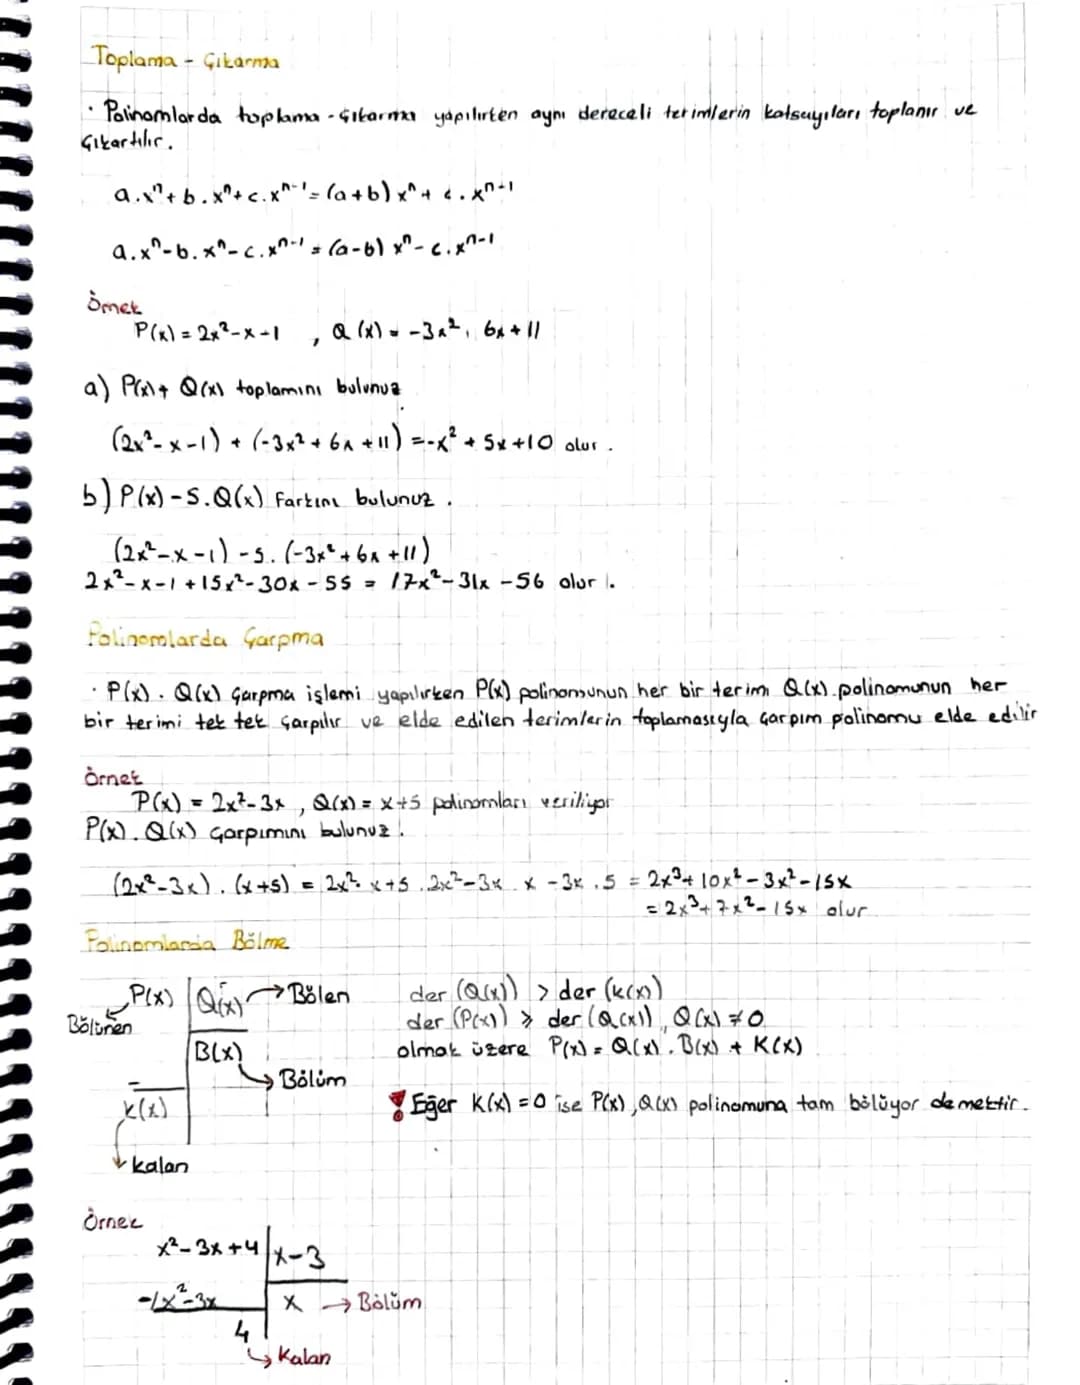 Toplama - Çıkarma
· Polinomlarda toplama - Çıkarma yapılırken aynı dereceli terimlerin katsayıları toplanır ve
Çıkartılır.
a.xⁿ + b.xⁿ + c.xⁿ⁻¹ = (a+b) xⁿ + c.xⁿ⁻¹
a.xⁿ - b.xⁿ - c.xⁿ⁻¹ = (a-b) xⁿ - c.xⁿ⁻¹
Örnek
P(x) = 2x² - x - 1 , Q(x) = -3x², 6x + 11
a) P(x) + Q(x) toplamını bulunuz
(2x² - x - 1) + (-3x² + 6x + 11) = -x² + 5x + 10 olur.
b) P(x) - 5.Q(x) Farkını bulunuz.
(2x² - x - 1) - 5. (-3x² + 6x + 11)
2x² - x - 1 + 15x² - 30x - 55 = 17x² - 31x - 56 olur.
Polinomlarda Çarpma
· P(x) . Q(x) Çarpma işlemi yapılırken P(x) polinomunun her bir terimi Q(x) polinomunun her
bir terimi tek tek çarpılır ve elde edilen terimlerin toplamasıyla çarpım polinomu elde edilir
Örnek
P(x) = 2x² - 3x , Q(x) = x+5 polinomları veriliyor
P(x) . Q(x) Çarpımını bulunuz.
(2x² - 3x) . (x+5) = 2x². x + 5 . 2x² - 3x . x - 3x . 5 = 2x³ + 10x² - 3x² - 15x
= 2x³ + 7x² - 15x olur
Polinomlarda Bölme
P(x) Q(x) → Bölen
Bölünen
B(x)
→ Bölüm
K(x)
→ kalan
der (Q(x)) > der (k(x))
der (P(x)) ≥ der (Q(x)), Q(x) ≠ 0
olmak üzere P(x) = Q(x) . B(x) + K(x)
! Eğer K(x) = 0 ise P(x), Q(x) polinomuna tam bölüyor demektir.
Örnek
x² - 3x + 4 x - 3
-x² - 3x x → Bölüm
4
→ Kalan